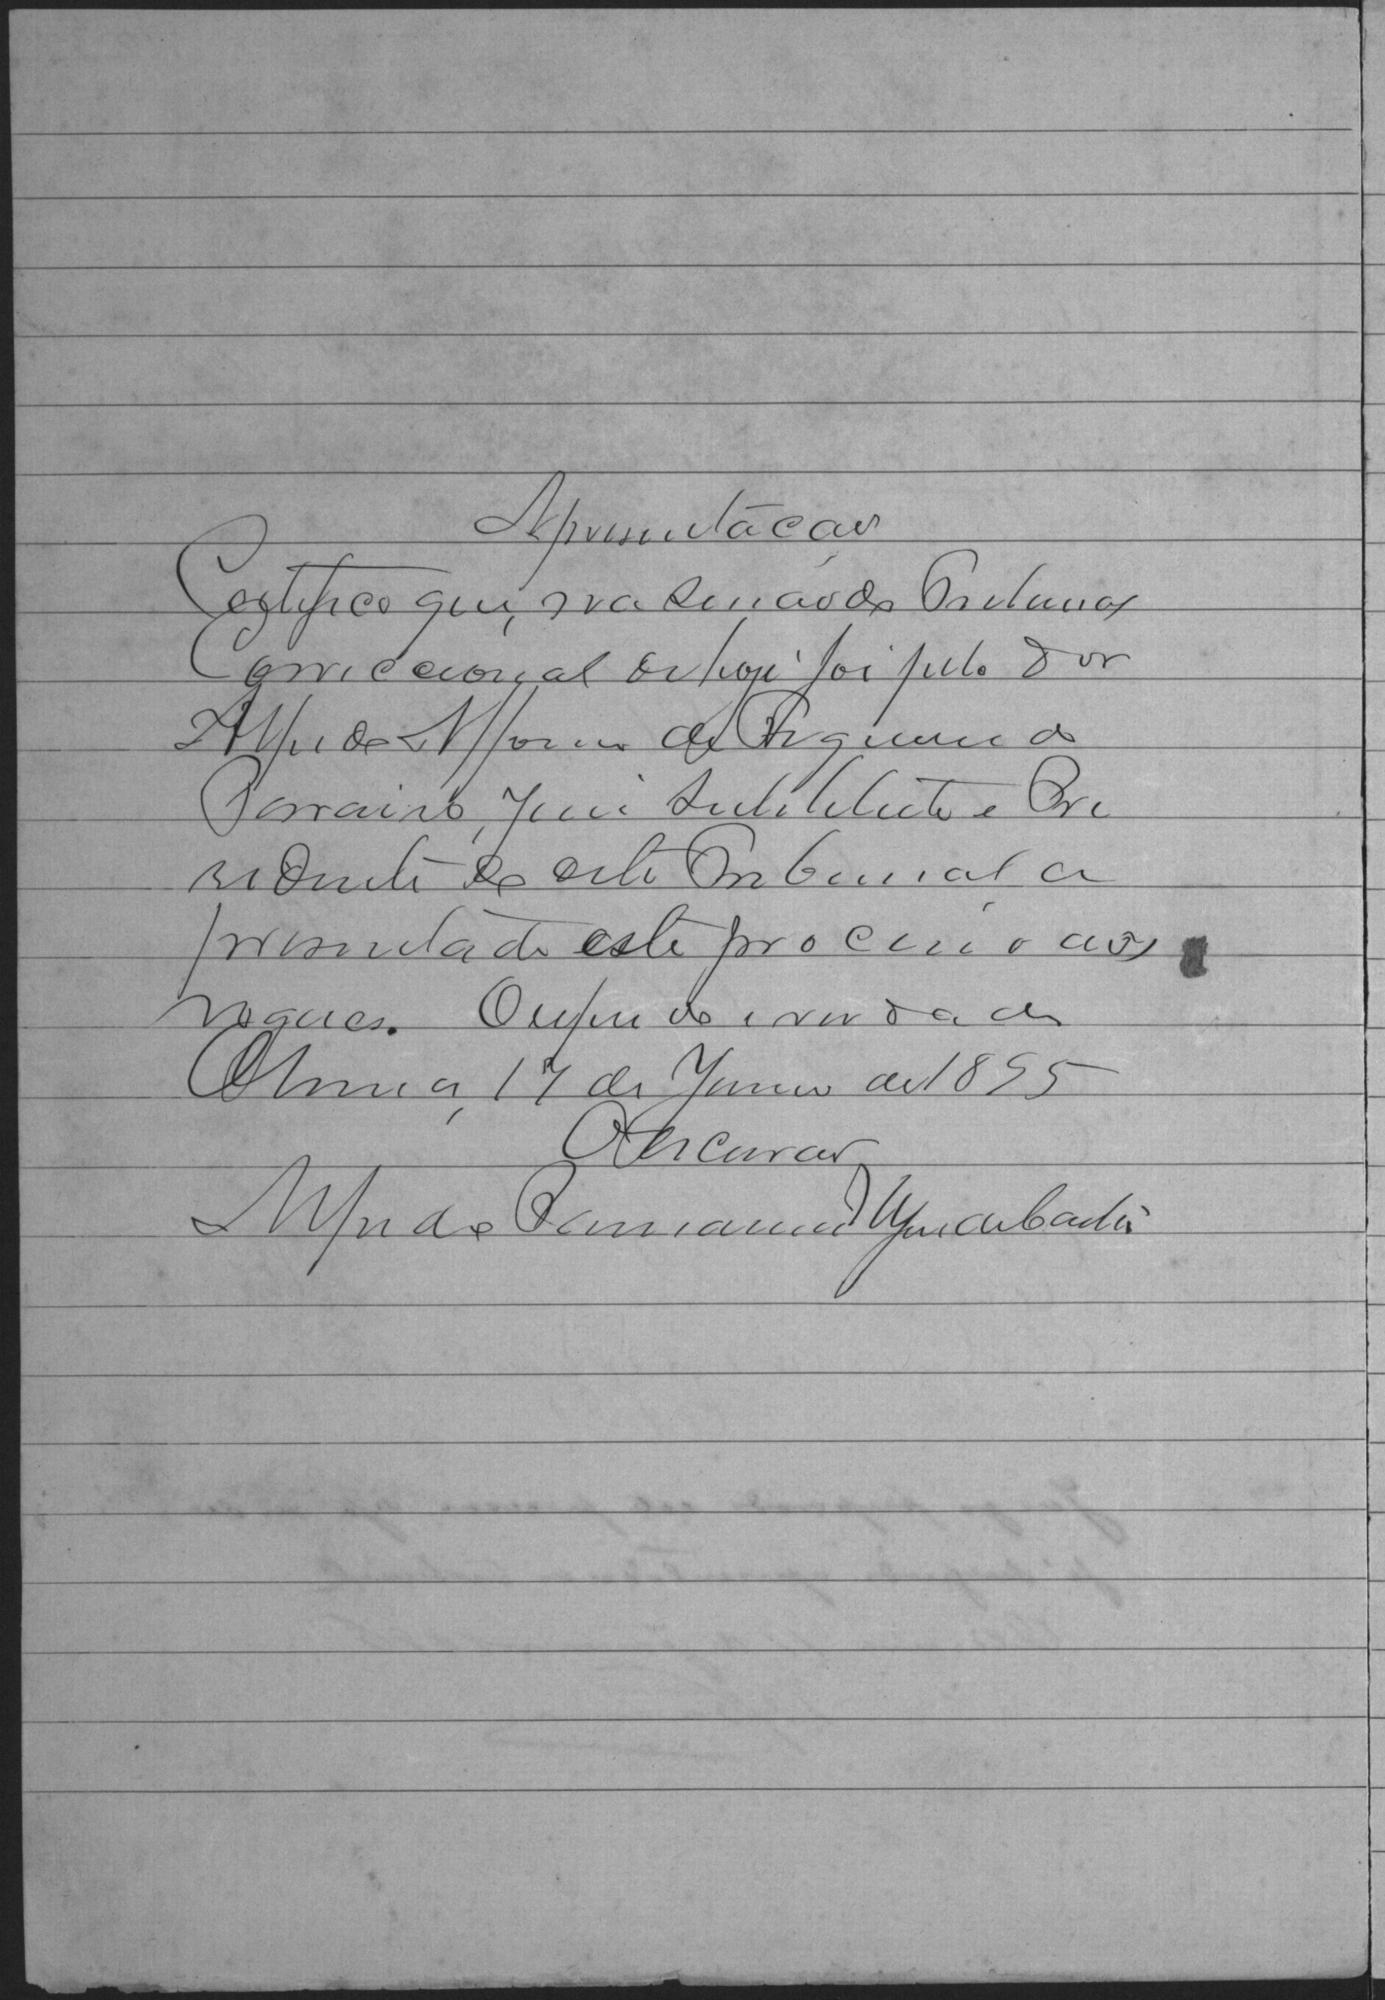 Apresentação
Certifico que, na sessão do Tribunal
Correccional de hoje foi pelo Dor
Alfredo Affonso de
Juiz Substituto e Pre
sidente de este Tribunal a
presentado este processo aos
vogaes. O referido é verdade
17 de Junho de 1895
O Escrivão
Alfredo